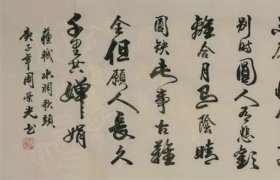 別時圓人有悲歡
離合月有陰晴
圓缺此事古難
全但願人長久
千里共嬋娟
蘇軾水調歌頭
庚子年周光书